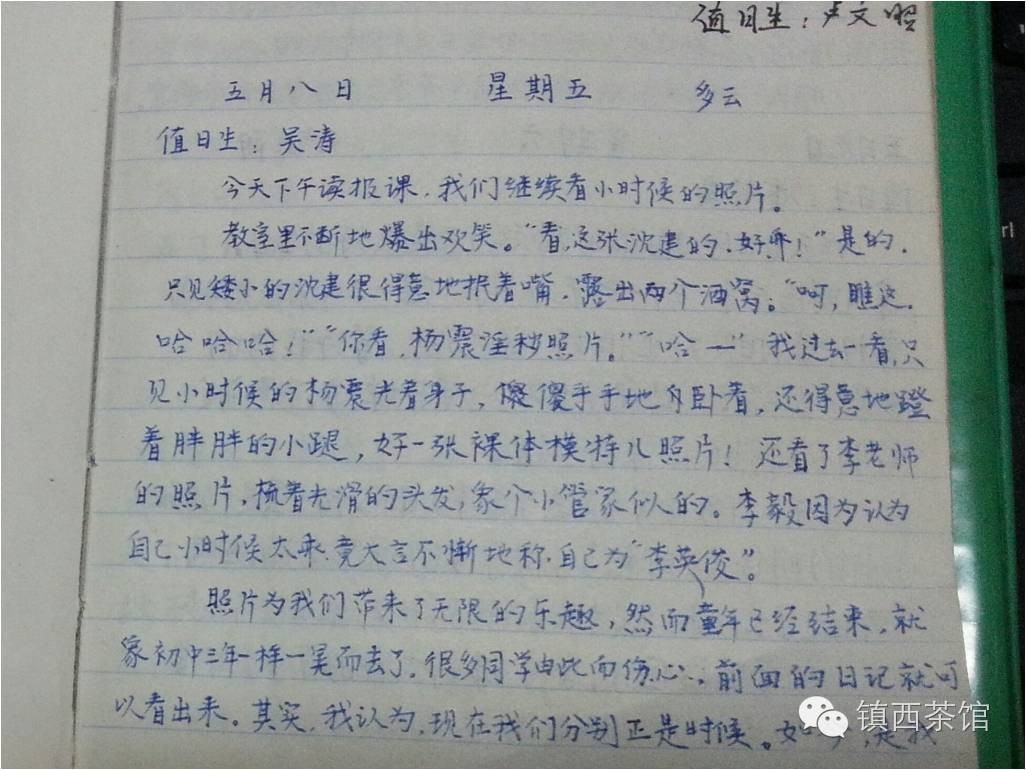 值日生：卢文昭
五月八日 星期五 多云
值日生：吴涛
今天下午读报课，我们继续看小时候的照片。
教室里不断地爆出欢笑。“看，这张沈建的，好乖！”是的，
只见矮小的沈建很得意地抿着嘴，露出两个酒窝。“呵，瞧这，
哈哈哈！”“你看，杨震淫秽照片。”“哈一”我过去一看，只
见小时候的杨震光着身子，傻傻乎乎地卧着，还得意地蹬
着胖胖的小腿，好一张裸体模特儿照片！还看了李老师
的照片，梳着光滑的头发，象个小管家似的。李毅因为认为
自己小时候太乖，竟大言不惭地称自己为“李英俊”。
照片为我们带来了无限的乐趣，然而童年已经结束，就
象初中三年一样一晃而去了。很多同学由此而伤心，前面的日记就可
以看出来。其实，我认为，现在我们分别正是时候。如 ，是我
镇西茶馆
rl